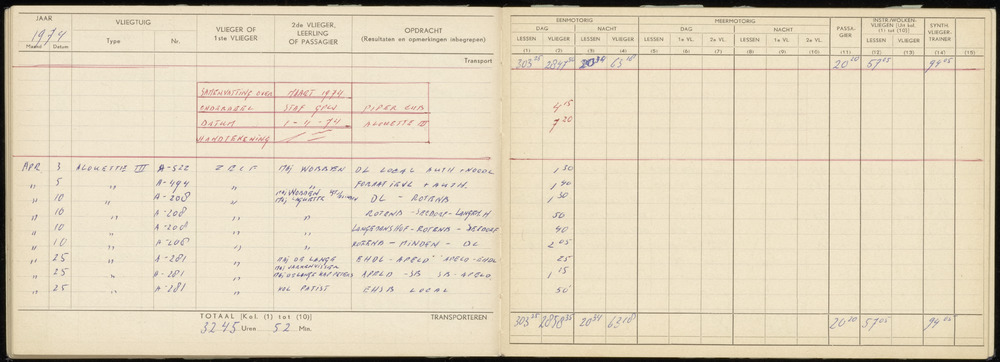 JAAR
1974
Maand Datum
VLIEGTUIG
Type Nr.
VLIEGER OF
1ste VLIEGER
2de VLIEGER,
LEERLING
OF PASSAGIER
OPDRACHT
(Resultaten en opmerkingen inbegrepen)
Transport
SAMENVATTING OVER MAART 1974
ONDERDEEL STAF GPLV PIPER CUB
DATUM 1-4-74 ALOUETTE III
HANDTEKENING
APR 3 ALOUETTE III A-522 ZELF MAJ WOBBEN DL LOCAL AUTH + NOODL
" 5 " A-494 " " FORMATIEVL + AUTH.
" 10 " A-208 " MAJ WOBBEN DL - ROTENB
" 10 " A-208 " " ROTENB - SEEDORF - LANGEN H
" 10 " A-208 " " LANGENDSHOF - ROTENB - SEEDORF
" 10 " A-208 " " ROTENB - MINDEN - DL
" 25 " A-281 " MAJ DE LANGE EHDL - APELD APELD - EHDL
" 25 " A-281 " MAJ DE LANGE APELD - SB SB - APELD
" 25 " A-281 " KOL PATIST EHSB LOCAL
TOTAAL [Kol. (1) tot (10)]
3245 Uren 52 Min.
TRANSPORTEREN
EENMOTORIG
DAG NACHT
LESSEN VLIEGER LESSEN VLIEGER
(1) (2) (3) (4)
MEERMOTORIG
DAG NACHT
LESSEN 1e VL. 2e VL. LESSEN 1e VL. 2e VL.
(5) (6) (7) (8) (9) (10)
PASSA-
GIER
(11)
INSTR./WOLKEN-
VLIEGEN [Uit kol.
(1) tot (10)]
LESSEN VLIEGER
(12) (13)
SYNTH.
VLIEGER-
TRAINER
(14)
(15)
303 35 2847 20 34 63 18 20 20 57 05 94 05
4 15
7 20
1 30
1 40
1 30
50
40
2 05
25
1 15
50
303 35 2858 35 20 34 63 18 20 20 57 05 94 05